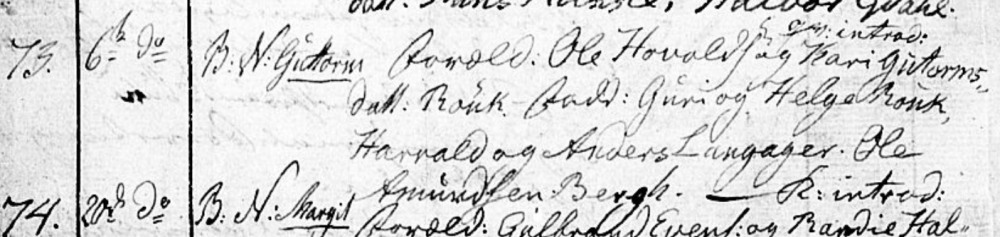 datt:
73. 6te do B: N: Guttorm Foræld: Ole Hovoldsen og Kari Gutorms-
qv: introd:
datt: Rouk Fadd: Guri og Helge Rouk,
Harrald og Anders Langager. Ole
Amundsen Bergh. — K: introd:
74. 20de do B: N: Margit Foræld: Gulbrand Evens: og Randie Hal-